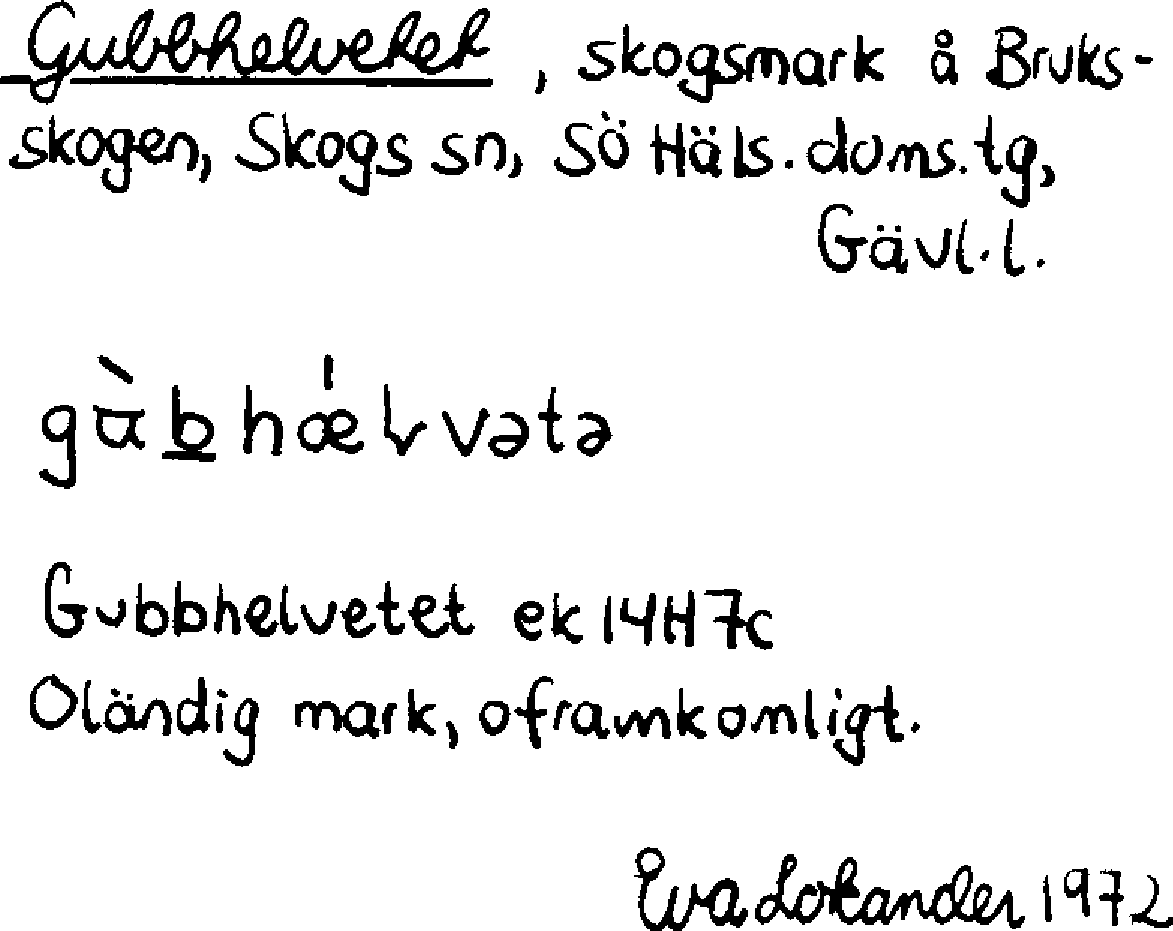 Gubbhelvetet, skogsmark å Bruks-
skogen, Skogs sn, Sö Häls. doms. tg,
Gävl. l.
gɑ̀b̲hǽlvətə
Gubbhelvetet ek 14H 7c
Oländig mark, oframkomligt.
Eva Lokander 1972